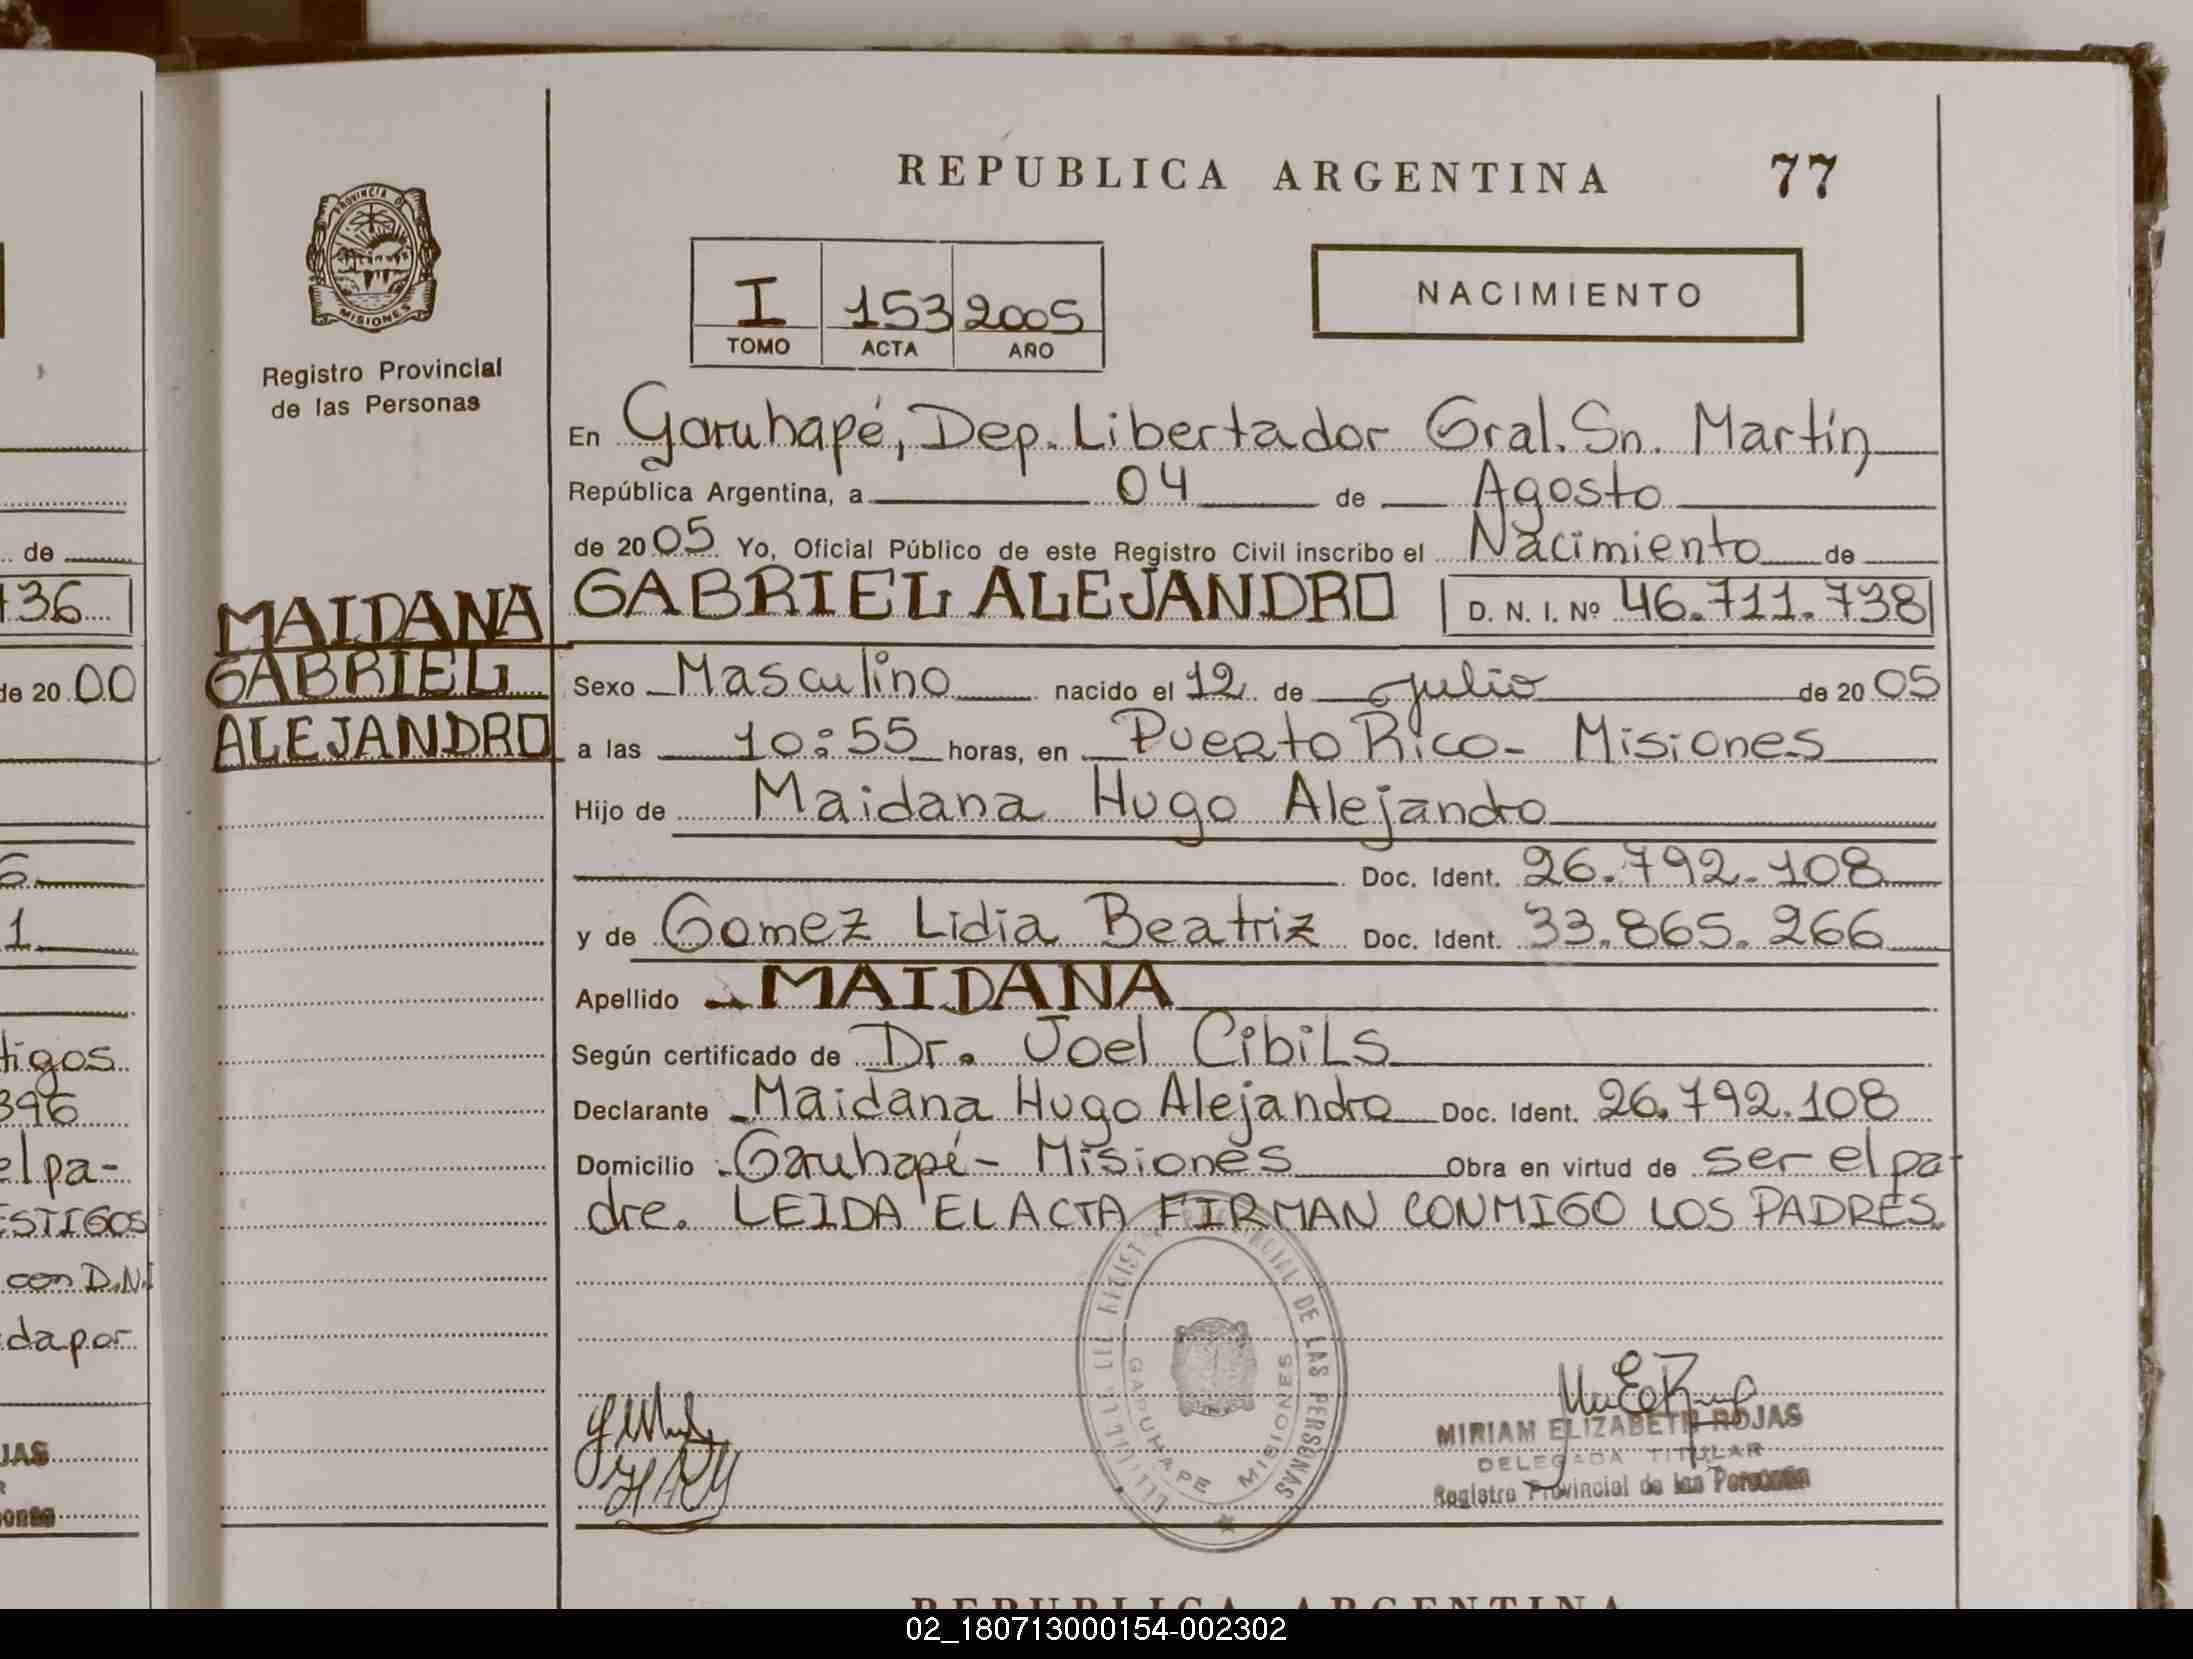 REPUBLICA ARGENTINA 77
PROVINCIA DE
MISIONES
Registro Provincial
de las Personas
I 153 2005
TOMO ACTA AÑO
NACIMIENTO
En Garuhapé, Dep. Libertador Gral. Sn. Martín
República Argentina, a 04 de Agosto
de 2005 Yo, Oficial Público de este Registro Civil inscribo el Nacimiento de
GABRIEL ALEJANDRO D. N. I. Nº 46.711.738
MAIDANA
GABRIEL
ALEJANDRO
Sexo Masculino nacido el 12 de julio de 2005
a las 10:55 horas, en Puerto Rico - Misiones
Hijo de Maidana Hugo Alejandro
Doc. Ident. 26.792.108
y de Gomez Lidia Beatriz Doc. Ident. 33.865.266
Apellido MAIDANA
Según certificado de Dr. Joel Cibils
Declarante Maidana Hugo Alejandro Doc. Ident. 26.792.108
Domicilio Garuhapé - Misiones Obra en virtud de ser el pa-
dre. LEIDA EL ACTA FIRMAN CONMIGO LOS PADRES.
DE LAS PERSONAS
GARUHAPE MISIONES
MIRIAM ELIZABETH ROJAS
DELEGADA TITULAR
Registro Provincial de las Personas
de
736
de 20 00
6
1
tigos
396
el pa-
ESTIGOS
con D.N.I
da por
JAS
REPUBLICA ARGENTINA
02_180713000154-002302